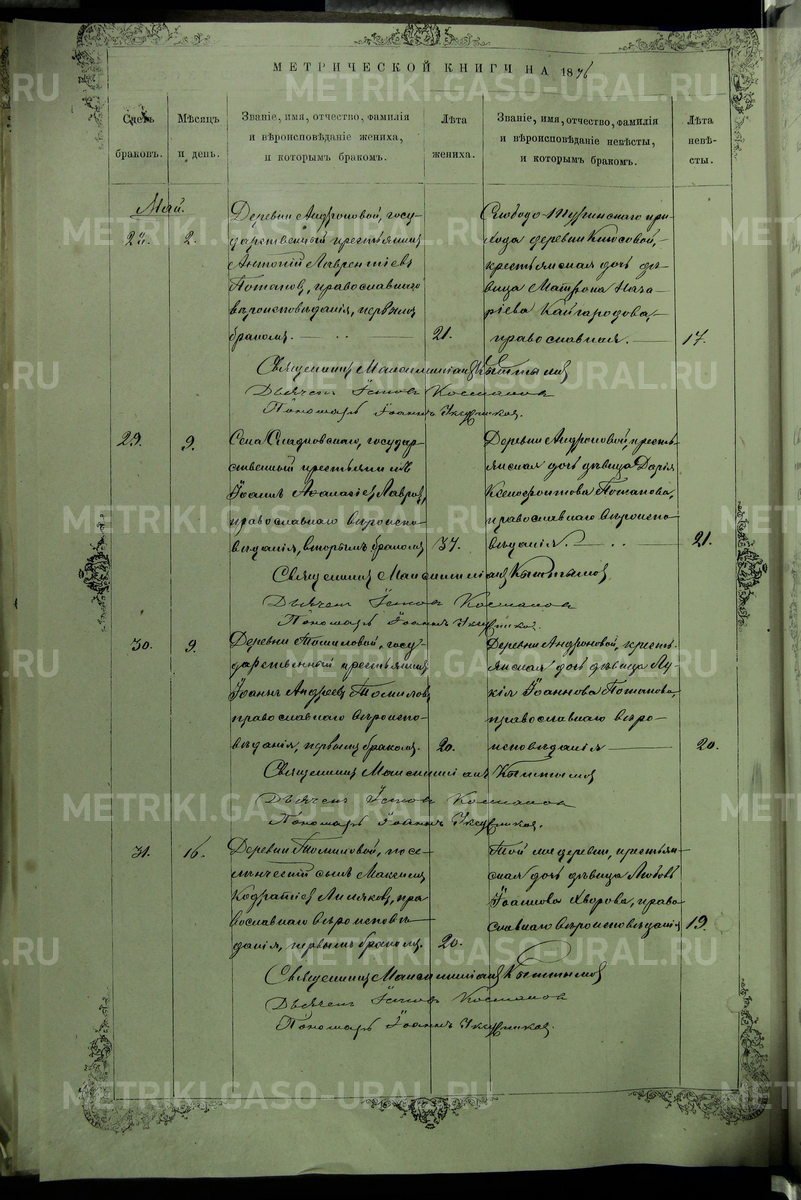 МЕТРИЧЕСКОЙ КНИГИ НА 1876
Счетъ браковъ.
Мѣсяцъ и день.
Званіе, имя, отчество, фамилія
и вѣроисповѣданіе жениха,
и которымъ бракомъ.
Лѣта жениха.
Званіе, имя, отчество, фамилія
и вѣроисповѣданіе невѣсты,
и которымъ бракомъ.
Лѣта невѣ-
сты.
Май.
28.
2.
Деревни Андроновой, госу-
дарственный крестьянинъ
Антоній Лаврентіевъ
Потаповъ, православнаго
вѣроисповѣданія, первымъ
бракомъ.
21.
Слободо-Туринскаго при-
хода деревни
крестьянская дочь дѣ-
вица Матрона Наза-
ріева Кайгородова,
православная.
17.
Священникъ Максимиліанъ
Дьячекъ Космаковъ
Пономарь Іоаннъ
29.
9.
Села Сладковскаго, государ-
ственный крестьянинъ
Іоаннъ Аѳанасіевъ Лавровъ,
православнаго вѣроиспо-
вѣданія, вторымъ бракомъ
37.
Деревни Андроновой, кресть-
янская дочь дѣвица Дарія
Ксенофонтова Потапова,
православнаго вѣроиспо-
вѣданія.
21.
Священникъ Максимиліанъ
Дьячекъ Космаковъ
Пономарь Іоаннъ
30.
9.
Деревни Томиловой, госу-
дарственный крестьянинъ
Іоаннъ Андреевъ Томиловъ
православнаго вѣроиспо-
вѣданія, первымъ бракомъ.
20.
Деревни Андроновой, кресть-
янская дочь дѣвица Лу-
кія Іоаннова Потапова,
православнаго вѣро-
исповѣданія
20.
Священникъ Максимиліанъ
Дьячекъ Космаковъ
Пономарь Іоаннъ
31.
16.
Деревни Томиловой, посе-
ленческій сынъ Максимъ
Кодратіевъ пра-
вославнаго вѣроисповѣ-
данія, первымъ бракомъ.
20.
Той же деревни, крестьян-
ская дочь дѣвица Любовь
Іоаннова Хворова, право-
славнаго вѣроисповѣданія
19.
Священникъ Максимиліанъ
Дьячекъ Космаковъ
Пономарь Іоаннъ
METRIKI.GASO-URAL.RU